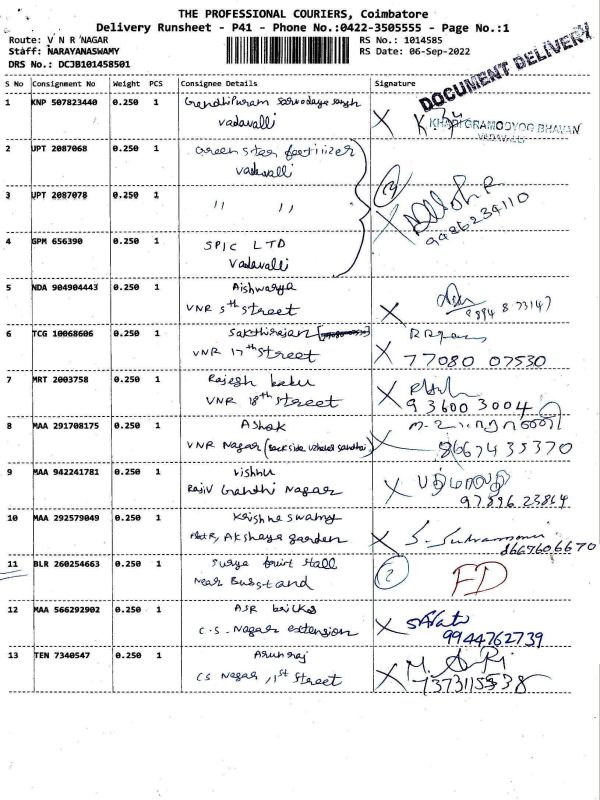 THE PROFESSIONAL COURIERS, Coimbatore
Delivery Runsheet - P41 - Phone No.:0422-3505555 - Page No.:1
Route: V N R NAGAR
RS No.: 1014585
Staff: NARAYANASWAMY
RS Date: 06-Sep-2022
DRS No.: DCJB101458501
DOCUMENT DELIVERY
S No Consignment No Weight PCS Consignee Details Signature
1 KNP 507823440 0.250 1 Gandhipuram Sarvodaya
Vadavalli
KHADI GRAMODYOG BHAVAN
VADAVALLI
2 UPT 2087068 0.250 1 Green star fertilizer
Vadavalli
3 UPT 2087078 0.250 1 " "
9926234110
4 GPM 656390 0.250 1 SPIC LTD
Vadavalli
5 NDA 904904443 0.250 1 Aishwarya
VNR 5th Street
6 TCG 10068606 0.250 1 Sakthirajan
VNR 17th Street 77080 07530
7 MRT 2003758 0.250 1 Rajesh babu
VNR 18th Street 93600 3004
8 MAA 291708175 0.250 1 Ashok
VNR Nagar (Back side sandhai) 8667435370
9 MAA 942241781 0.250 1 Vishnu பத்மாவதி
Rajiv Gandhi Nagar
10 MAA 292579049 0.250 1 Krishna swamy
Akshaya garden 8667606670
11 BLR 260254663 0.250 1 Surya fruit Stall 2 FD
Near Busstand
12 MAA 566292902 0.250 1 ASR bricks
C.S. Nagar extension 9944762739
13 TEN 7340547 0.250 1 Arunraj
CS Nagar, 1st Street